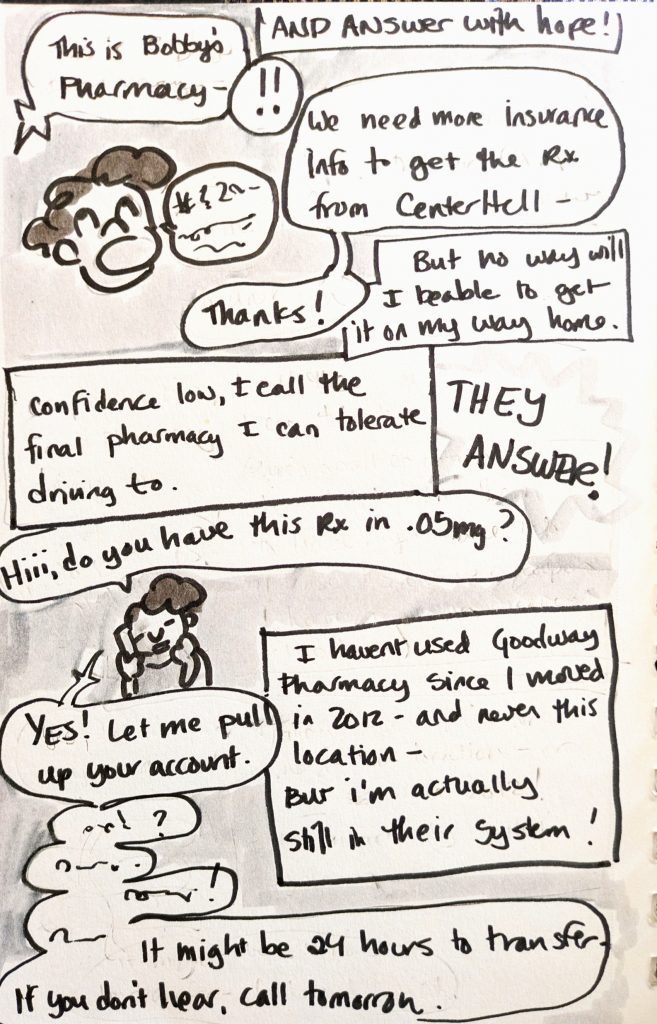 AND ANSWER with hope!
This is Bobby's
Pharmacy-
!!
We need more insurance
info to get the Rx
from CenterHell -
Thanks!
But no way will
I beable to get
it on my way home.
Confidence low, I call the
final pharmacy I can tolerate
driving to.
THEY
ANSWER!
Hiii, do you have this Rx in .05mg?
YES! Let me pull
up your account.
I havent used Goodway
Pharmacy since I moved
in 2012 - and never this
location -
But i'm actually
still in their system!
?
!
It might be 24 hours to transfer-
If you don't hear, call tomorrow.